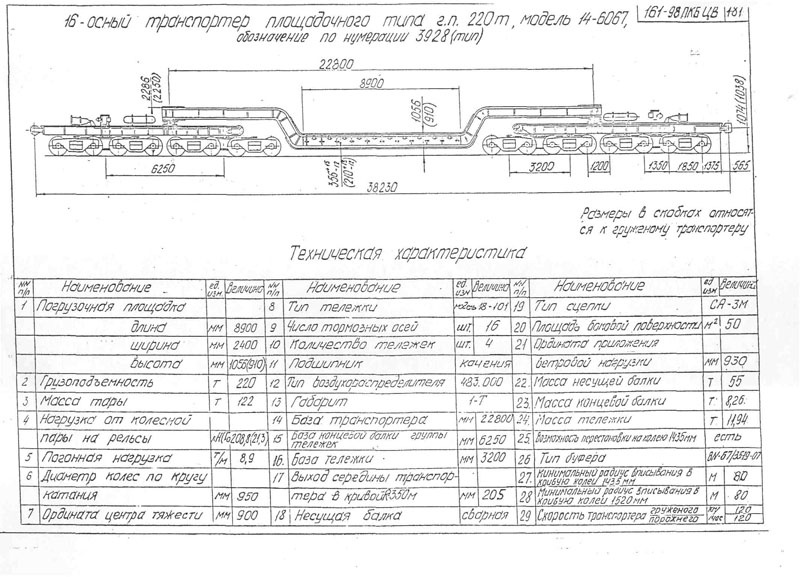 16-осный транспортер площадочного типа г.п. 220т, модель 14-6067,
161-98 ПКБ ЦВ 181
обозначение по нумерации 3928 (тип)
22800
8900
2286
(2250)
1056
(910)
1074 (1038)
6250
3200
1200
1350
1850
1375
565
38230
Размеры в скобках относят-
ся к груженому транспортеру
Техническая характеристика
№№ п/п Наименование ед. изм Величина №№ п/п Наименование ед. изм Величина №№ п/п Наименование ед изм Величина
1 Погрузочная площадка 8 Тип тележки модель 18-101 19 Тип сцепки СА-3М
длина мм 8900 9 Число тормозных осей шт. 16 20 Площадь боковой поверхности м² 50
ширина мм 2400 10 Количество тележек шт. 4 21 Ордината приложения
высота мм 1056(910) 11 Подшипник качения ветровой нагрузки мм 930
2 Грузоподъемность т 220 12 Тип воздухораспределителя 483.000 22. Масса несущей балки т 55
3 Масса тары т 122 13 Габарит 1-Т 23. Масса концевой балки т 8,26.
4 Нагрузка от колесной 14 База транспортера мм 22800 24. Масса тележки т 11,94
пары на рельсы 15 База концевой балки группы тележек мм 6250 25. Возможность перестановки на колею 1435мм есть
5 Погонная нагрузка т/м 8,9 16. База тележки мм 3200 26 Тип буфера
6 Диаметр колес по кругу 17 Выход середины транспор- 27. Минимальный радиус вписывания в кривую колеи 1435 мм м 80
катания мм 950 тера в кривой R350м мм 205 28 Минимальный радиус вписывания в кривую колеи 1520мм м 80
7 Ордината центра тяжести мм 900 18 Несущая балка сварная 29 Скорость транспортера груженого порожнего км/час 120 120